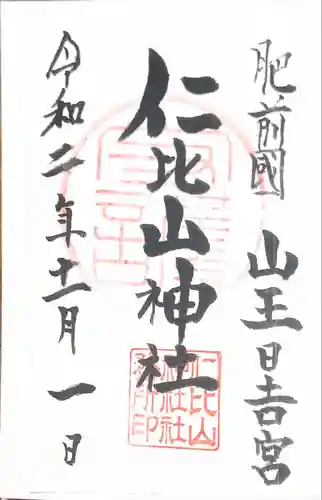 肥前國 山王日吉宮
仁比山神社
令和二年十一月一日
仁比山
神社社
務所印